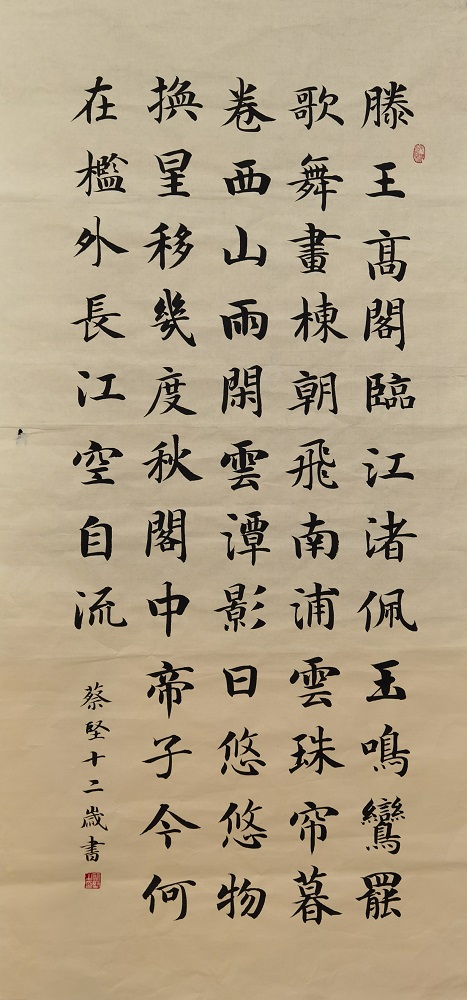 滕王高閣臨江渚佩玉鳴鸞罷
歌舞畫棟朝飛南浦雲珠帘暮
卷西山雨閑雲潭影日悠悠物
換星移幾度秋閣中帝子今何
在檻外長江空自流
蔡堅十二歲書